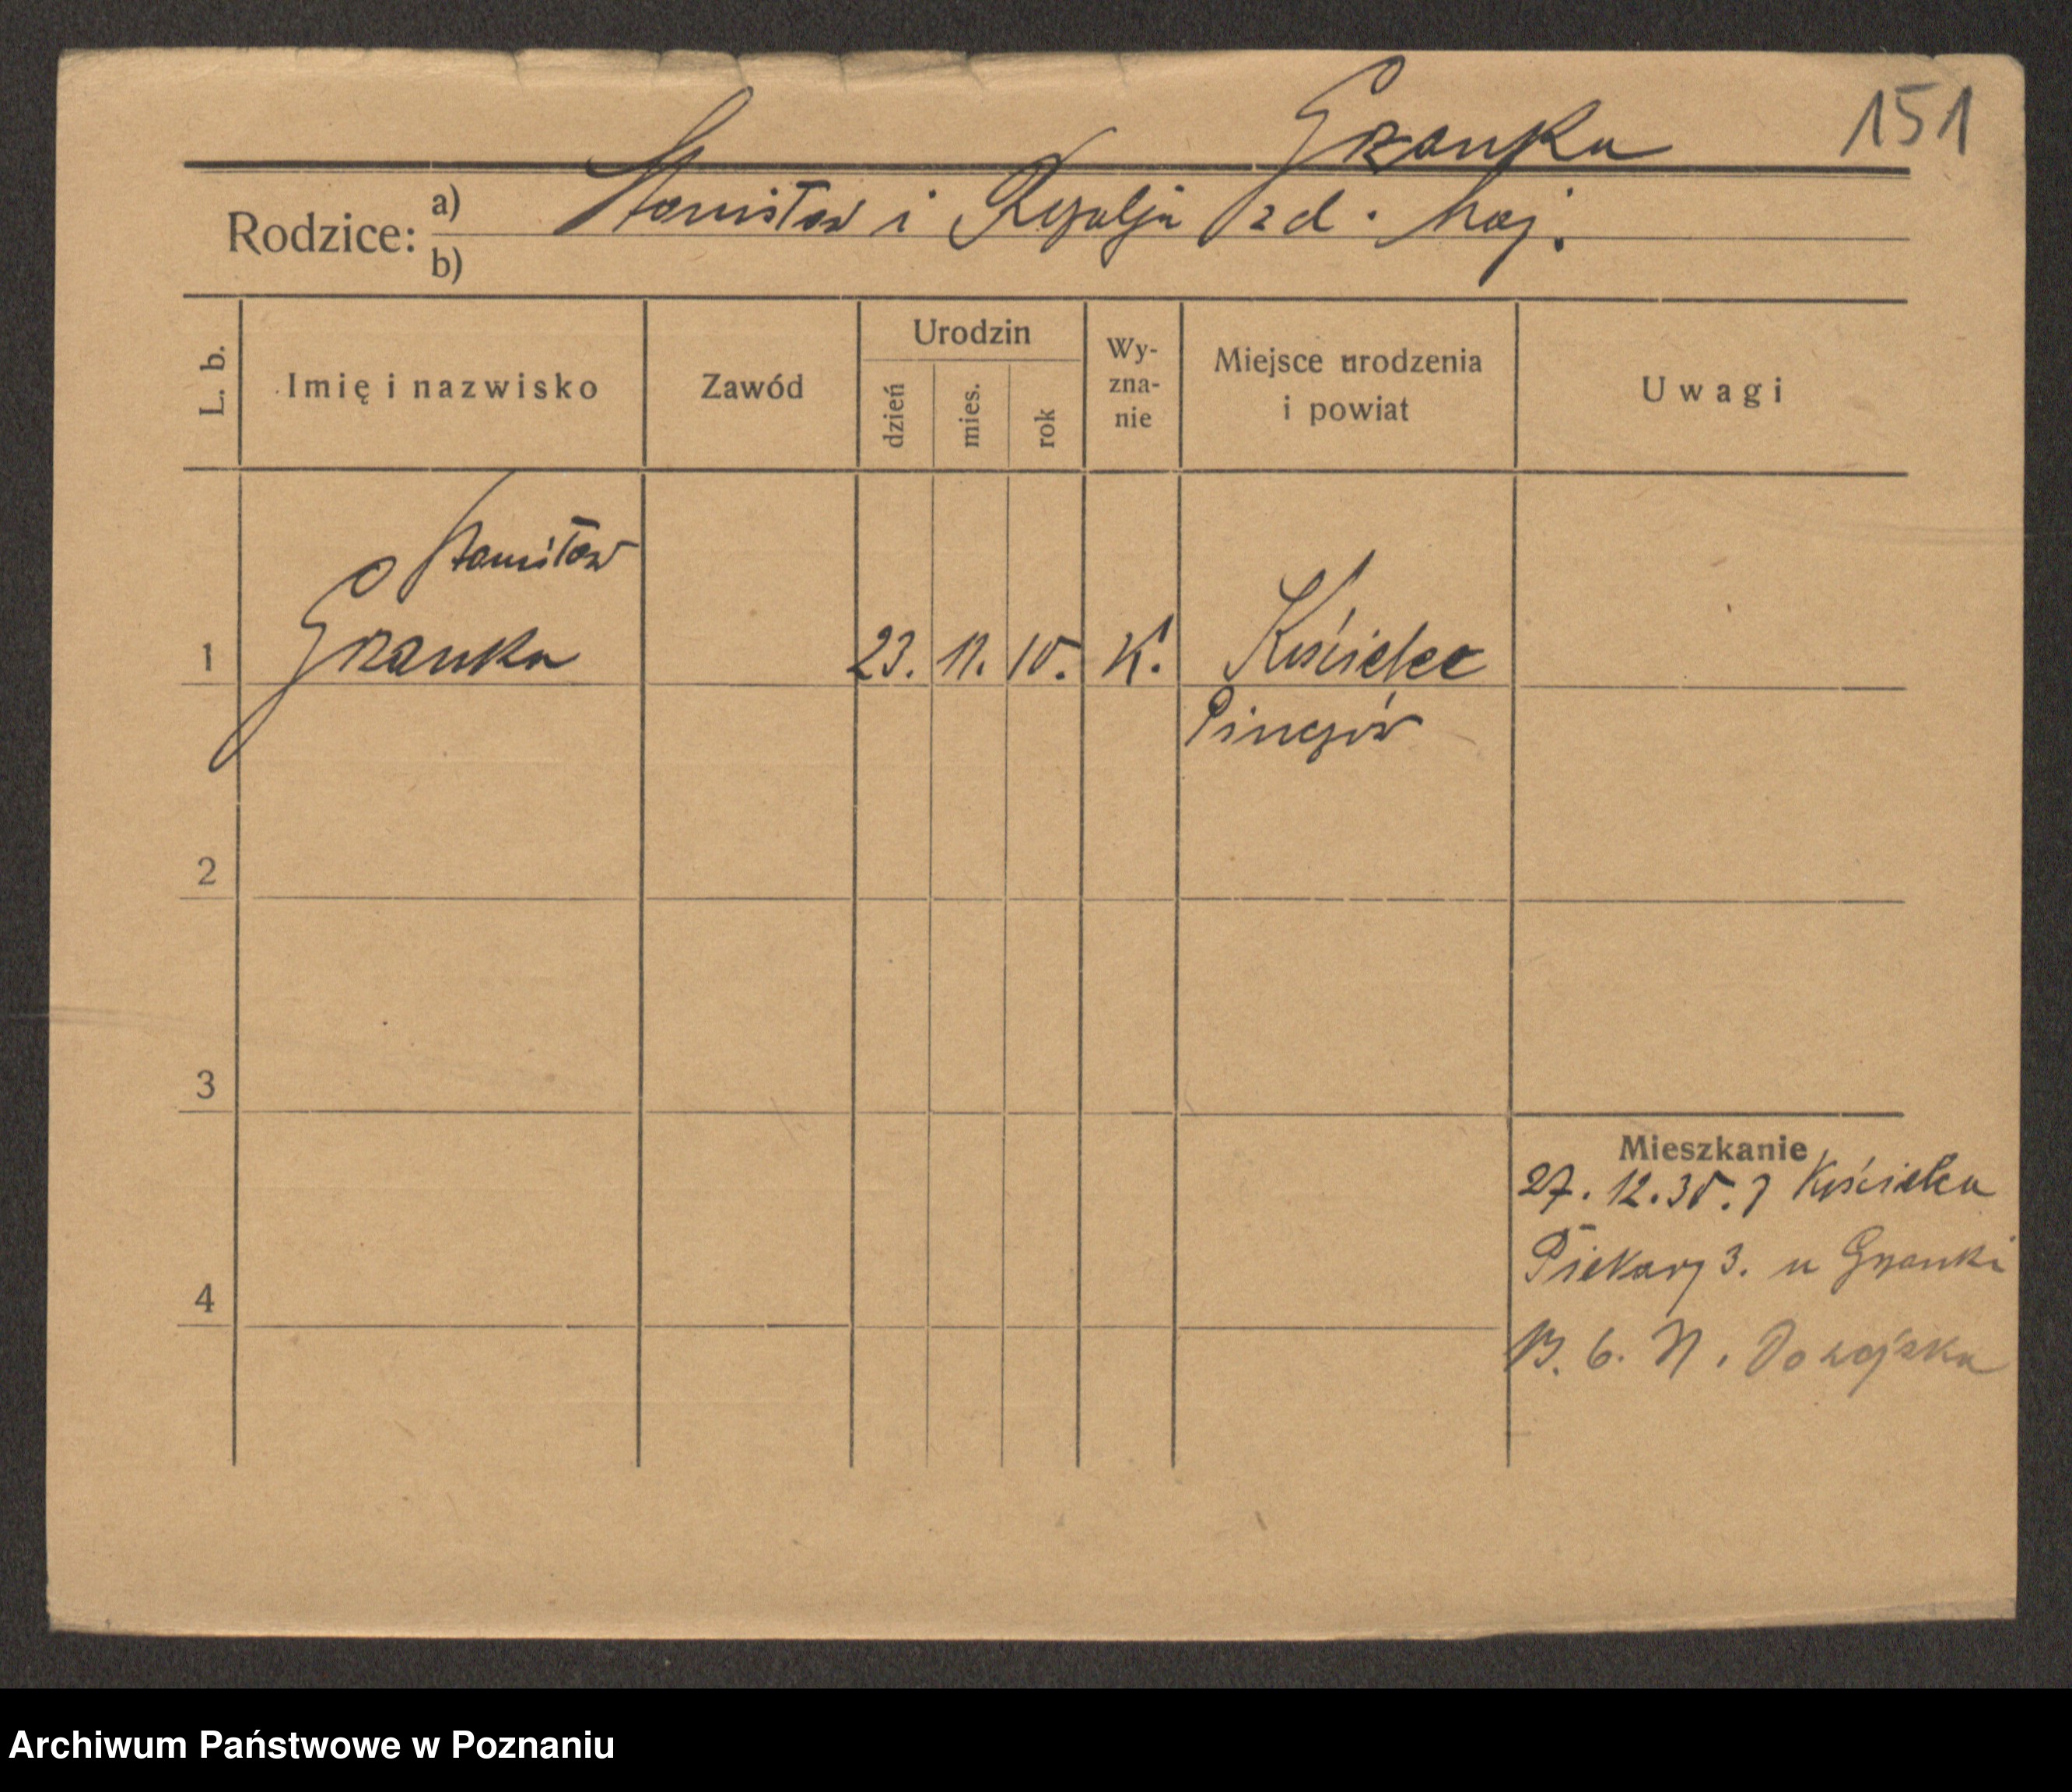 Grzanka 151
Rodzice: a) Stanisław i Rozalja z d. Maj.
b)
L. b. Imię i nazwisko Zawód Urodzin dzień mies. rok Wy-zna-nie Miejsce urodzenia i powiat Uwagi
Stanisław
1 Grzanka 23. 11. 10. K. Kościelec
Pinczów
2
3
Mieszkanie
27. 12. 35. z Kościelca
Piekary 3. u Grzanki
4
6. N.
Archiwum Państwowe w Poznaniu